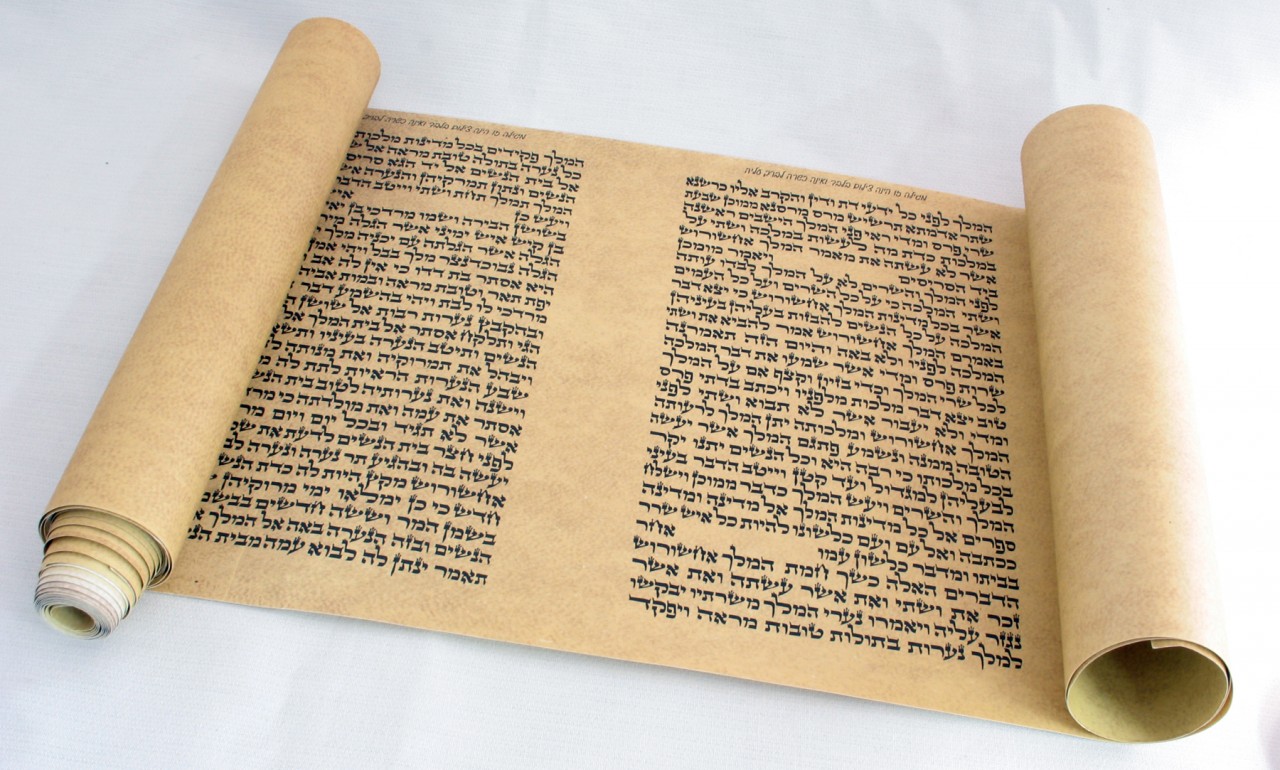 מגילה זו הינה צילום בלבד ואינה כשרה לברך עליה
המלך לפני כל ידעי דת ודין והקרב אליו כרשנא
שתר אדמתא תרשיש מרס מרסנא ממוכן שבעת
שרי פרס ומדי ראי פני המלך הישבים ראשנה
במלכות כדת מה לעשות במלכה ושתי על
אשר לא עשתה את מאמר המלך אחשורוש
ביד הסריסים ויאמר מומכן
לפני המלך והשרים לא על המלך לבדו עותה
ושתי המלכה כי על כל השרים ועל כל העמים
אשר בכל מדינות המלך אחשורוש כי יצא דבר
המלכה על כל הנשים להבזות בעליהן בעיניהן
באמרם המלך אחשורוש אמר להביא את ושתי
המלכה לפניו ולא באה והיום הזה תאמרנה
שרות פרס ומדי אשר שמעו את דבר המלכה
לכל שרי המלך וכדי בזיון וקצף אם על המלך
טוב יצא דבר מלכות מלפניו ויכתב בדתי פרס
ומדי ולא יעבור אשר לא תבוא ושתי לפני
המלך אחשורוש ומלכותה יתן המלך לרעותה
הטובה ממנה ונשמע פתגם המלך אשר יעשה
בכל מלכותו כי רבה היא וכל הנשים יתנו יקר
לבעליהן למגדול ועד קטן וייטב הדבר בעיני
המלך והשרים ויעש המלך כדבר ממוכן וישלח
ספרים אל כל מדינות המלך אל מדינה ומדינה
ככתבה ואל עם ועם כלשונו להיות כל איש שרר
בביתו ומדבר כלשון עמו אחר
הדברים האלה כשך חמת המלך אחשורוש
זכר את ושתי ואת אשר עשתה ואת אשר
נגזר עליה ויאמרו נערי המלך משרתיו יבקשו
למלך נערות בתולות טובות מראה ויפקד
מגילה זו הינה צילום בלבד ואינה כשרה
המלך פקידים בכל מדינות מלכות
כל נערה בתולה טובת מראה אל
אל בית הנשים אל יד הגא סריס
הנשים ונתון תמרקיהן והנערה
המלך תמלך תחת ושתי וייטב הדבר
ויעש כן איש
בשושן הבירה ושמו מרדכי בן
בן קיש איש ימיני אשר הגלה
אשר הגלתה עם יכניה מלך
הגלה נבוכדנצר מלך בבל ויהי אמן
היא אסתר בת דדו כי אין לה אב
יפת תאר וטובת מראה ובמות אביה
מרדכי לו לבת ויהי בהשמע דבר
ובהקבץ נערות רבות אל שושן
הגי ותלקח אסתר אל בית המלך אל
הנשים ותיטב הנערה בעיניו ותשא
ויבהל את תמרוקיה ואת מנותה
שבע הנערות הראיות לתת לה
וישנה ואת נערותיה לטוב בית
אסתר את עמה ואת מולדתה כי
אשר לא תגיד ובכל יום ויום
לפני חצר בית הנשים לדעת את
יעשה בה ובהגיע תר נערה ונערה
אחשורוש מקץ היות לה כדת
חדש כי כן ימלאו ימי מרוקיהן
בשמן המר וששה חדשים
הנשים ובזה הנערה באה אל המלך
תאמר ינתן לה לבוא עמה מבית